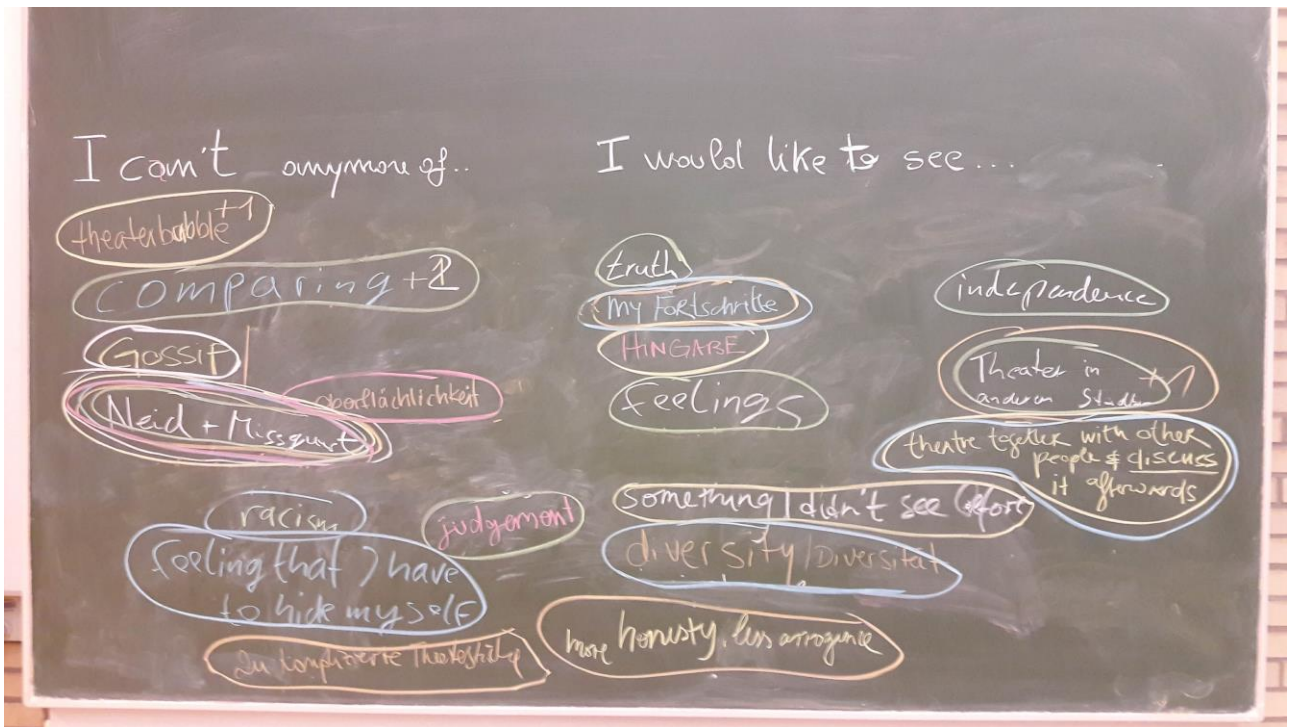 I can't anymore of..
theaterbubble +1
comparing +2
Gossip
Oberflächlichkeit
Neid + Missgunst
racism
judgement
feeling that I have
to hide myself
zu komplizierte Theaterstücke
I would like to see...
truth
my Fortschritte
HINGABE
feelings
something I didn't see before
diversity / Diversität
more honesty, less arrogance
independence
Theater in
anderen Städten +1
theatre together with other
people & discuss
it afterwards